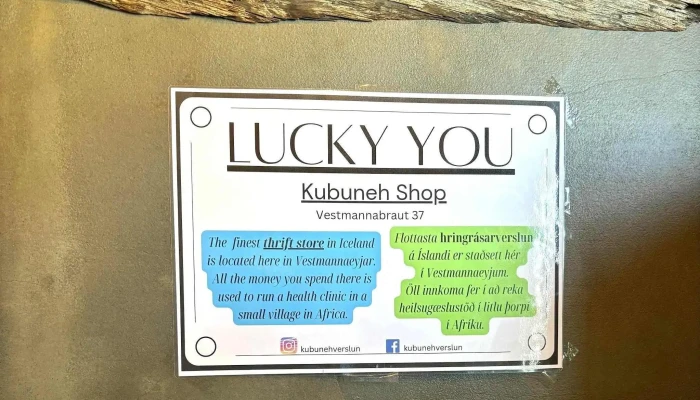 LUCKY YOU
Kubuneh Shop
Vestmannabraut 37
The finest thrift store in Iceland
is located here in Vestmannaeyjar.
All the money you spend there is
used to run a health clinic in a
small village in Africa.
Flottasta hringrásarverslun
á Íslandi er staðsett hér
í Vestmannaeyjum.
Öll innkoma fer í að reka
heilsugæslustöð í litlu þorpi
í Afríku.
kubunehverslun
kubunehverslun